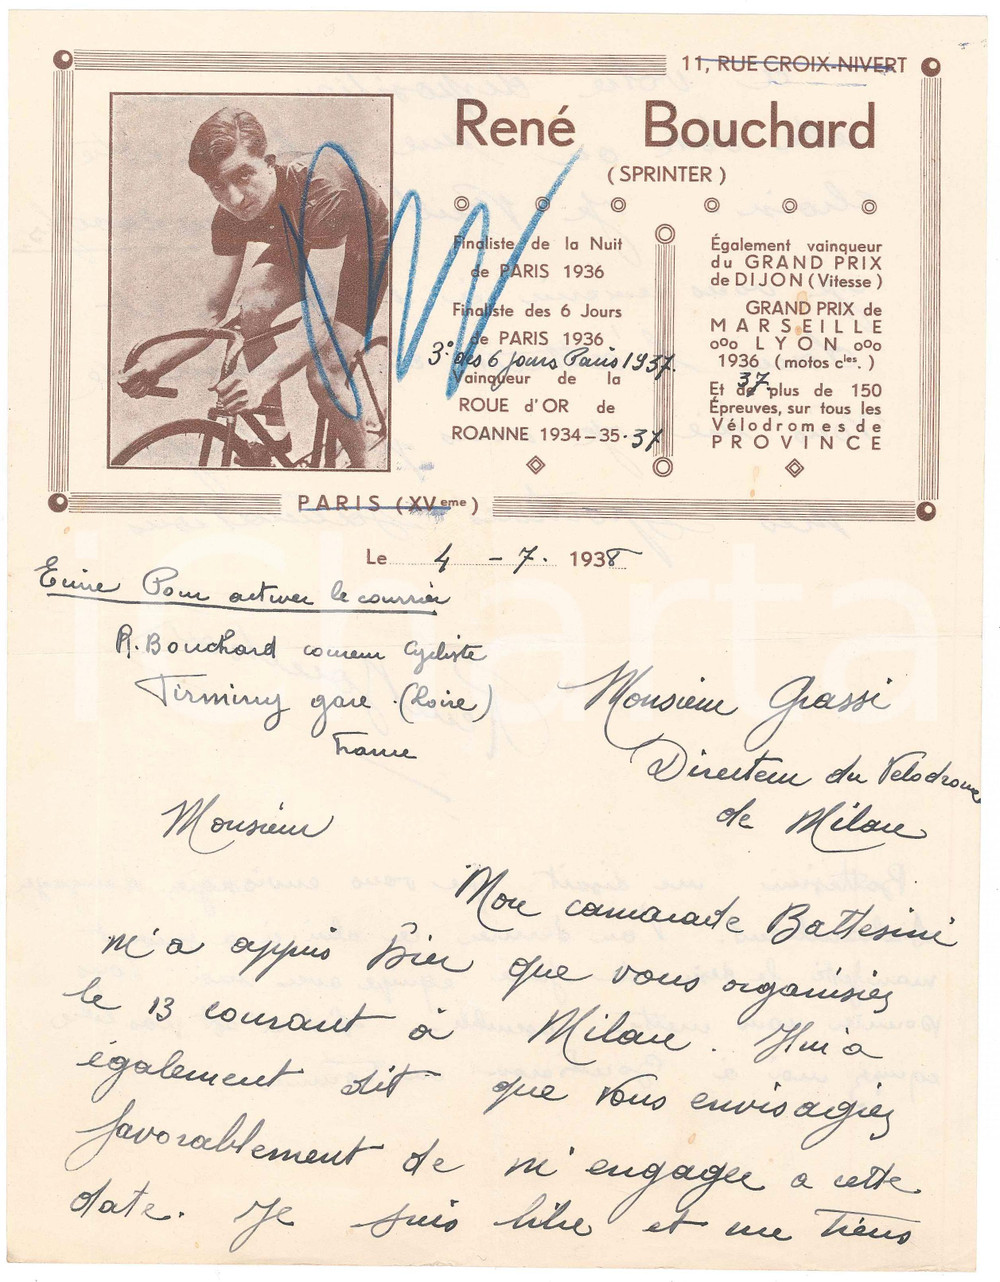 11, RUE CROIX-NIVERT
René Bouchard
(SPRINTER)
Finaliste de la Nuit
de PARIS 1936
Finaliste des 6 Jours
de PARIS 1936
3e des 6 jours Paris 1937.
Vainqueur de la
ROUE d'OR de
ROANNE 1934-35-37
Également vainqueur
du GRAND PRIX
de DIJON (Vitesse)
GRAND PRIX de
MARSEILLE
LYON
1936 (motos cles.)
37
Et de plus de 150
Épreuves, sur tous les
Vélodromes de
PROVINCE
PARIS (XVeme)
Le 4 - 7. 1938
Ecrire Pour activer le courrier
R. Bouchard coureur cycliste
Firminy gare (Loire)
France
Monsieur Grassi
Directeur du Vélodrome
de Milan
Monsieur
Mon camarade Battesini
m'a appris hier que vous organisiez
le 13 courant à Milan. Il m'a
également dit que vous envisagiez
favorablement de m'engager a cette
date. Je suis libre et me tiens
iCharta